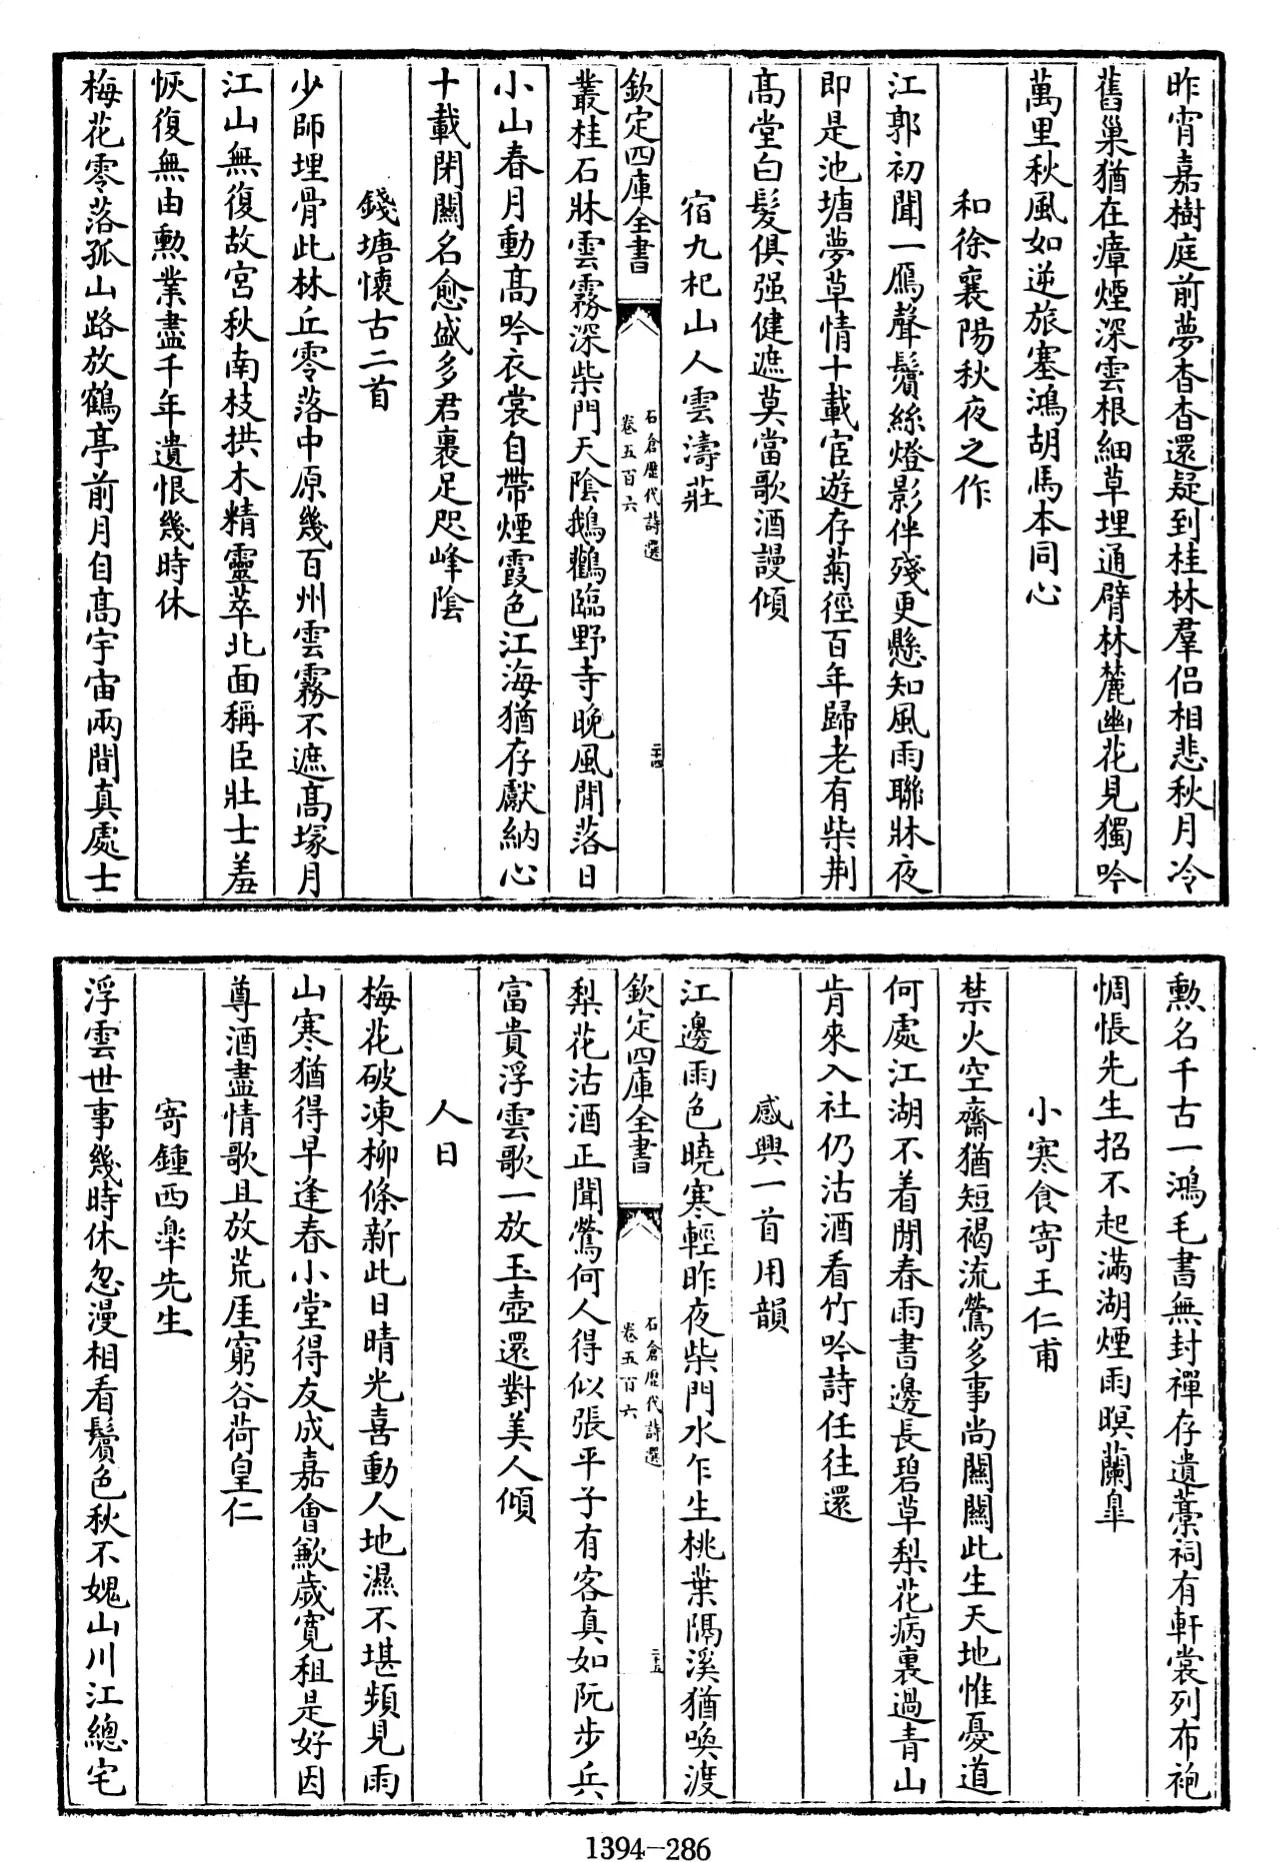 昨宵嘉樹庭前夢杳杳還疑到桂林羣侣相悲秋月冷
舊巢猶在瘴煙深雲根細草埋通臂林麓幽花見獨吟
萬里秋風如逆旅塞鴻胡馬本同心
和徐襄陽秋夜之作
江郭初聞一鴈聲鬢絲燈影伴殘更懸知風雨聯牀夜
即是池塘夢草情十載宦遊存菊徑百年歸老有柴荆
髙堂白髪俱强健遮莫當歌酒謾傾
宿九杞山人雲濤莊
欽定四庫全書
石倉歴代詩選
卷五百六
二十四
叢桂石牀雲霧深柴門天隂鵝鸛臨野寺晚風聞落日
小山春月動髙吟衣裳自帶煙霞色江海猶存獻納心
十載閉闗名愈盛多君裹足咫峰隂
錢塘懷古二首
少師埋骨此林丘零落中原幾百州雲霧不遮髙塚月
江山無復故宮秋南枝拱木精靈萃北面稱臣壯士羞
恢復無由勲業盡千年遺恨幾時休
梅花零落孤山路放鶴亭前月自髙宇宙兩間真處士
勲名千古一鴻毛書無封禪存遺藁祠有軒裳列布袍
惆悵先生招不起滿湖煙雨暝蘭臯
小寒食寄王仁甫
禁火空齋猶短褐流鶯多事尚闗闗此生天地惟憂道
何處江湖不着閒春雨書邊長碧草梨花病裏過青山
肯來入社仍沽酒看竹吟詩任往還
感興一首用韻
江邊雨色曉寒輕昨夜柴門水乍生桃葉隔溪猶喚渡
欽定四庫全書
石倉歴代詩選
卷五百六
二十五
梨花沽酒正聞鶯何人得似張平子有客真如阮步兵
富貴浮雲歌一放玉壺還對美人傾
人日
梅花破凍柳條新此日晴光喜動人地濕不堪頻見雨
山寒猶得早逢春小堂得友成嘉會歉歲寛租是好因
尊酒盡情歌且放荒厓窮谷荷皇仁
寄鍾西臯先生
浮雲世事幾時休忽漫相看鬢色秋不媿山川江總宅
1394-286